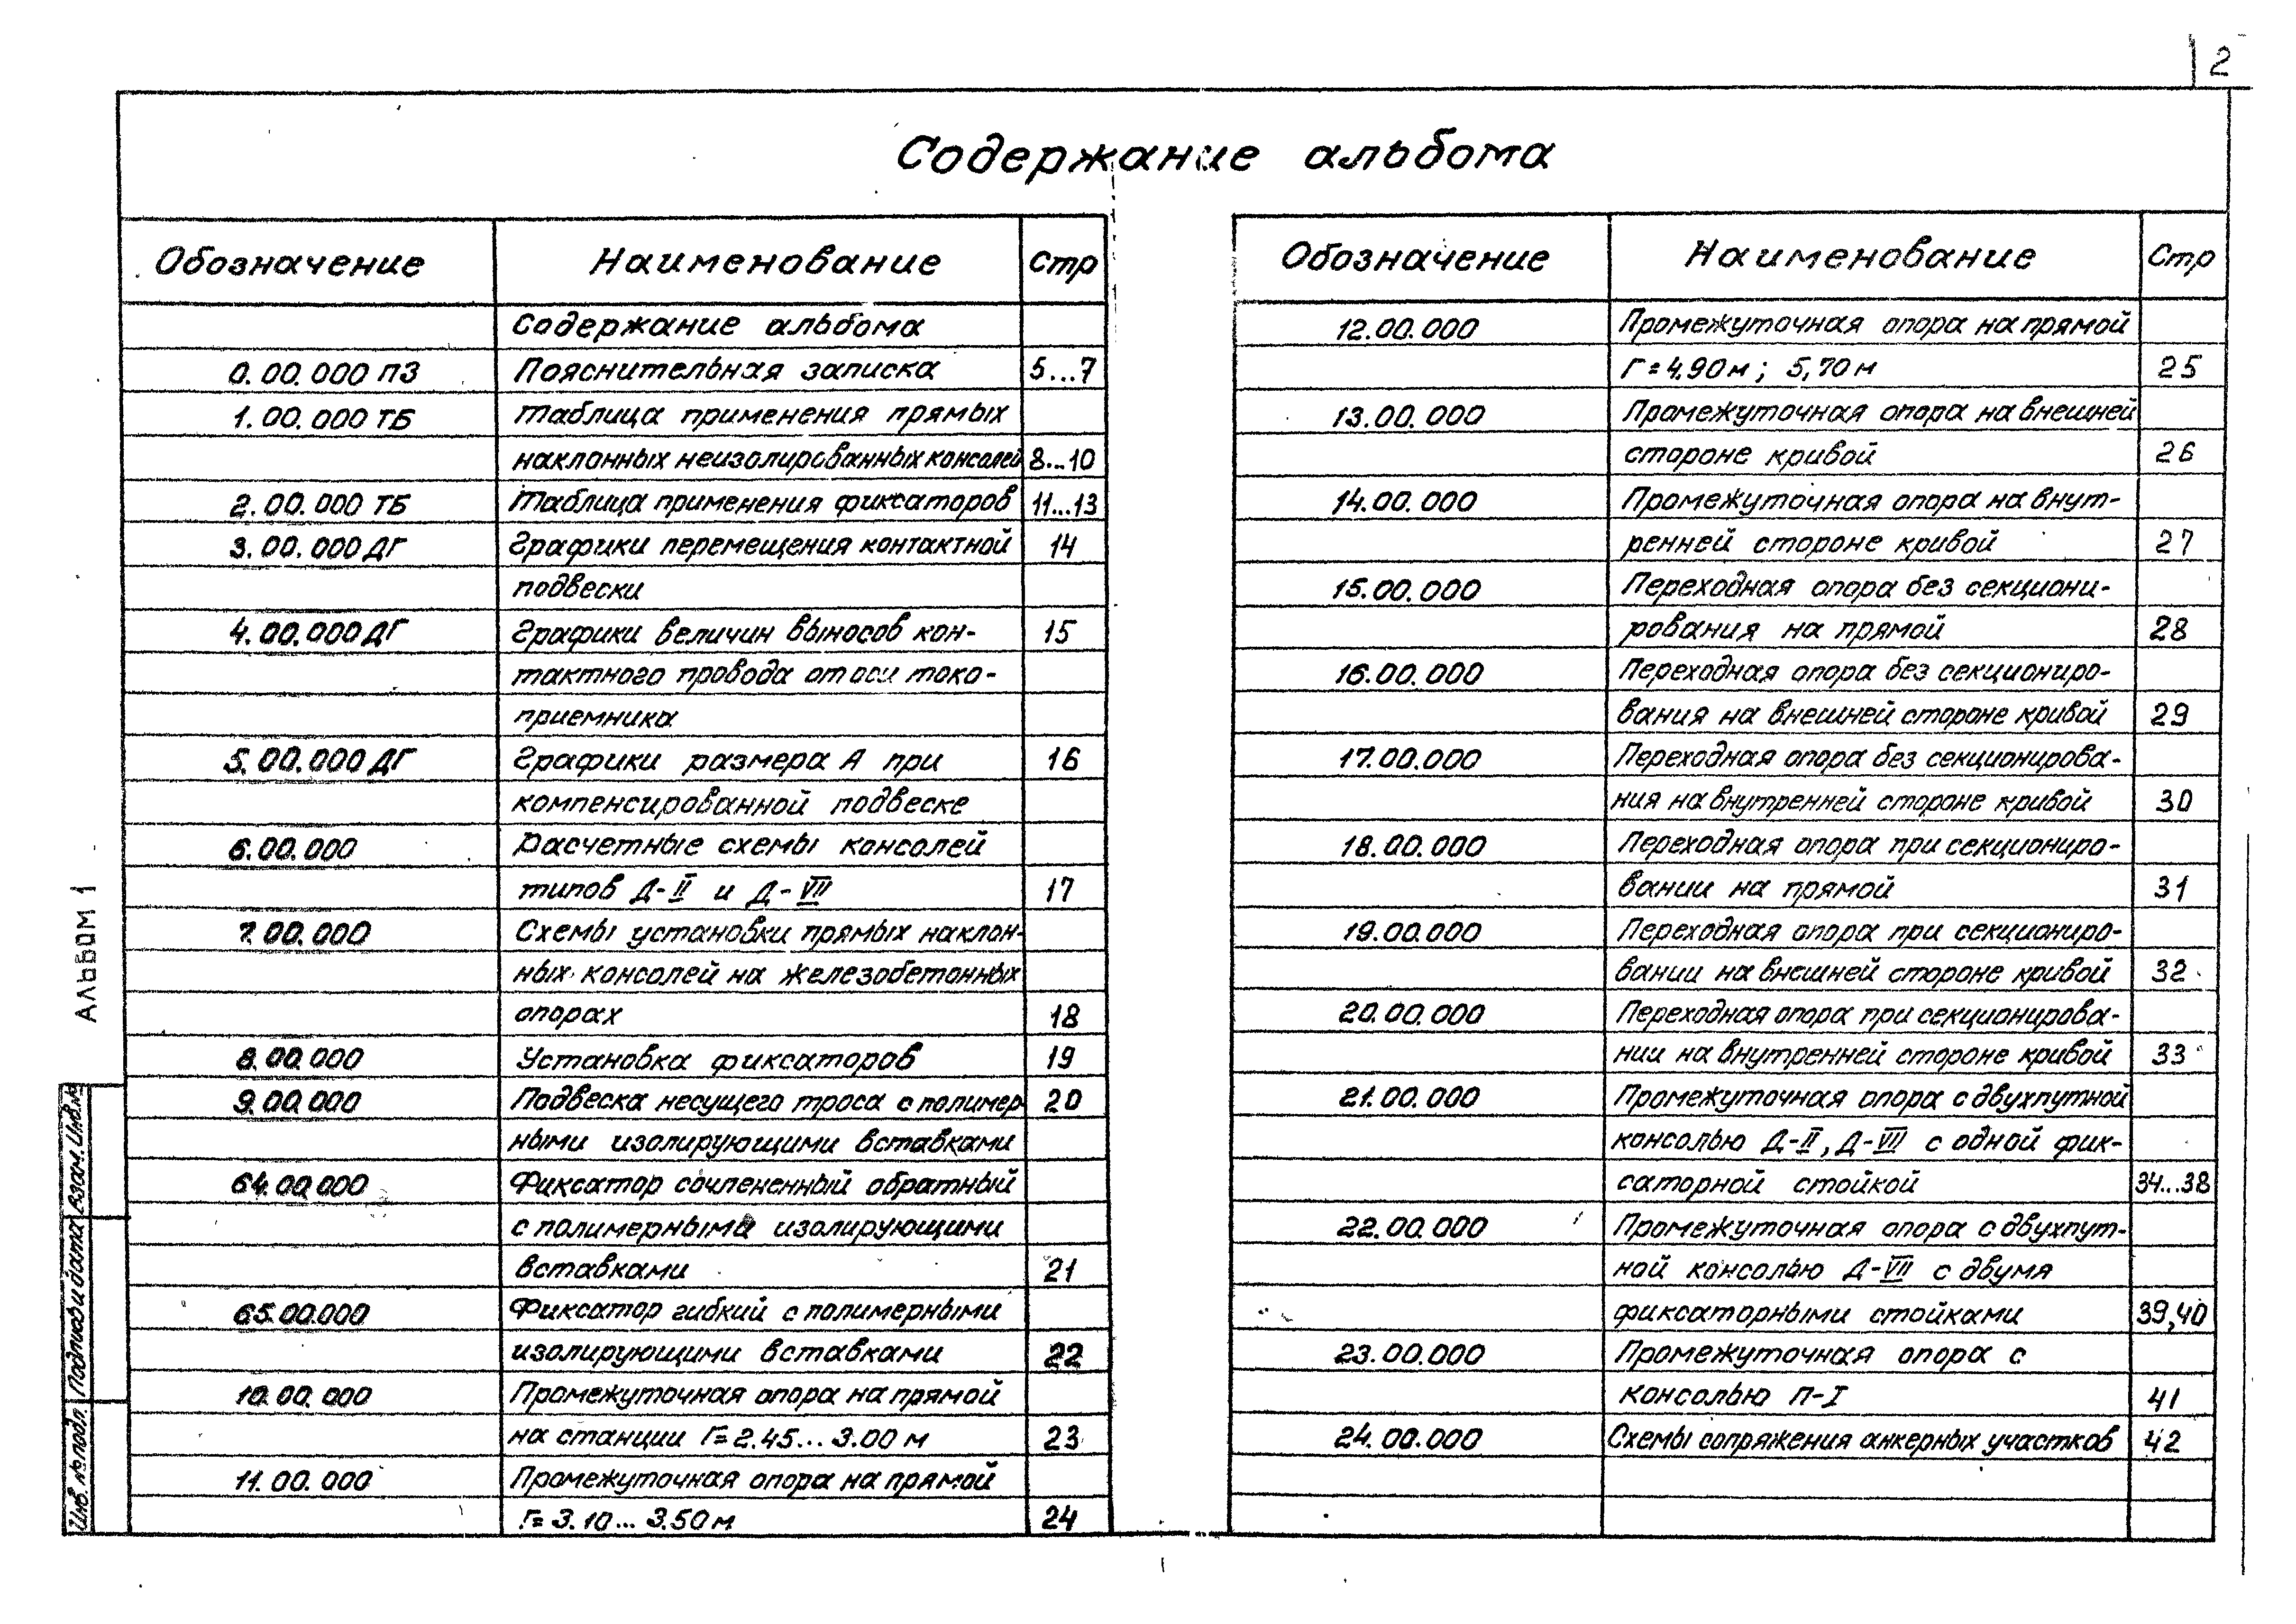 2
Содержание альбома
Обозначение Наименование Стр
Содержание альбома
0.00.000 ПЗ Пояснительная записка 5...7
1.00.000 ТБ Таблица применения прямых
наклонных неизолированных консолей 8...10
2.00.000 ТБ Таблица применения фиксаторов 11...13
3.00.000 ДГ Графики перемещения контактной 14
подвески
4.00.000 ДГ Графики величин выносов кон- 15
тактного провода от оси токо-
приемника
5.00.000 ДГ Графики размера А при 16
компенсированной подвеске
6.00.000 Расчетные схемы консолей
типов Д-II и Д-VII 17
7.00.000 Схемы установки прямых наклон-
ных консолей на железобетонных
опорах 18
8.00.000 Установка фиксаторов 19
9.00.000 Подвеска несущего троса с полимер- 20
ными изолирующими вставками
64.00.000 Фиксатор сочлененный обратный
с полимерными изолирующими
вставками 21
65.00.000 Фиксатор гибкий с полимерными
изолирующими вставками 22
10.00.000 Промежуточная опора на прямой
на станции Г=2.45...3.00 м 23
11.00.000 Промежуточная опора на прямой
Г=3.10...3.50 м 24
Обозначение Наименование Стр
12.00.000 Промежуточная опора на прямой
Г=4.90 м; 5,70 м 25
13.00.000 Промежуточная опора на внешней
стороне кривой 26
14.00.000 Промежуточная опора на внут-
ренней стороне кривой 27
15.00.000 Переходная опора без секциони-
рования на прямой 28
16.00.000 Переходная опора без секциониро-
вания на внешней стороне кривой 29
17.00.000 Переходная опора без секционирова-
ния на внутренней стороне кривой 30
18.00.000 Переходная опора при секциониро-
вании на прямой 31
19.00.000 Переходная опора при секциониро-
вании на внешней стороне кривой 32
20.00.000 Переходная опора при секционирова-
нии на внутренней стороне кривой 33
21.00.000 Промежуточная опора с двухпутной
консолью Д-II, Д-VII с одной фик-
саторной стойкой 34...38
22.00.000 Промежуточная опора с двухпут-
ной консолью Д-VII с двумя
фиксаторными стойками 39,40
23.00.000 Промежуточная опора с
консолью П-I 41
24.00.000 Схемы сопряжения анкерных участков 42
Альбом 1
Взам. Инв.№
Подпись и дата
Инв. № подл.